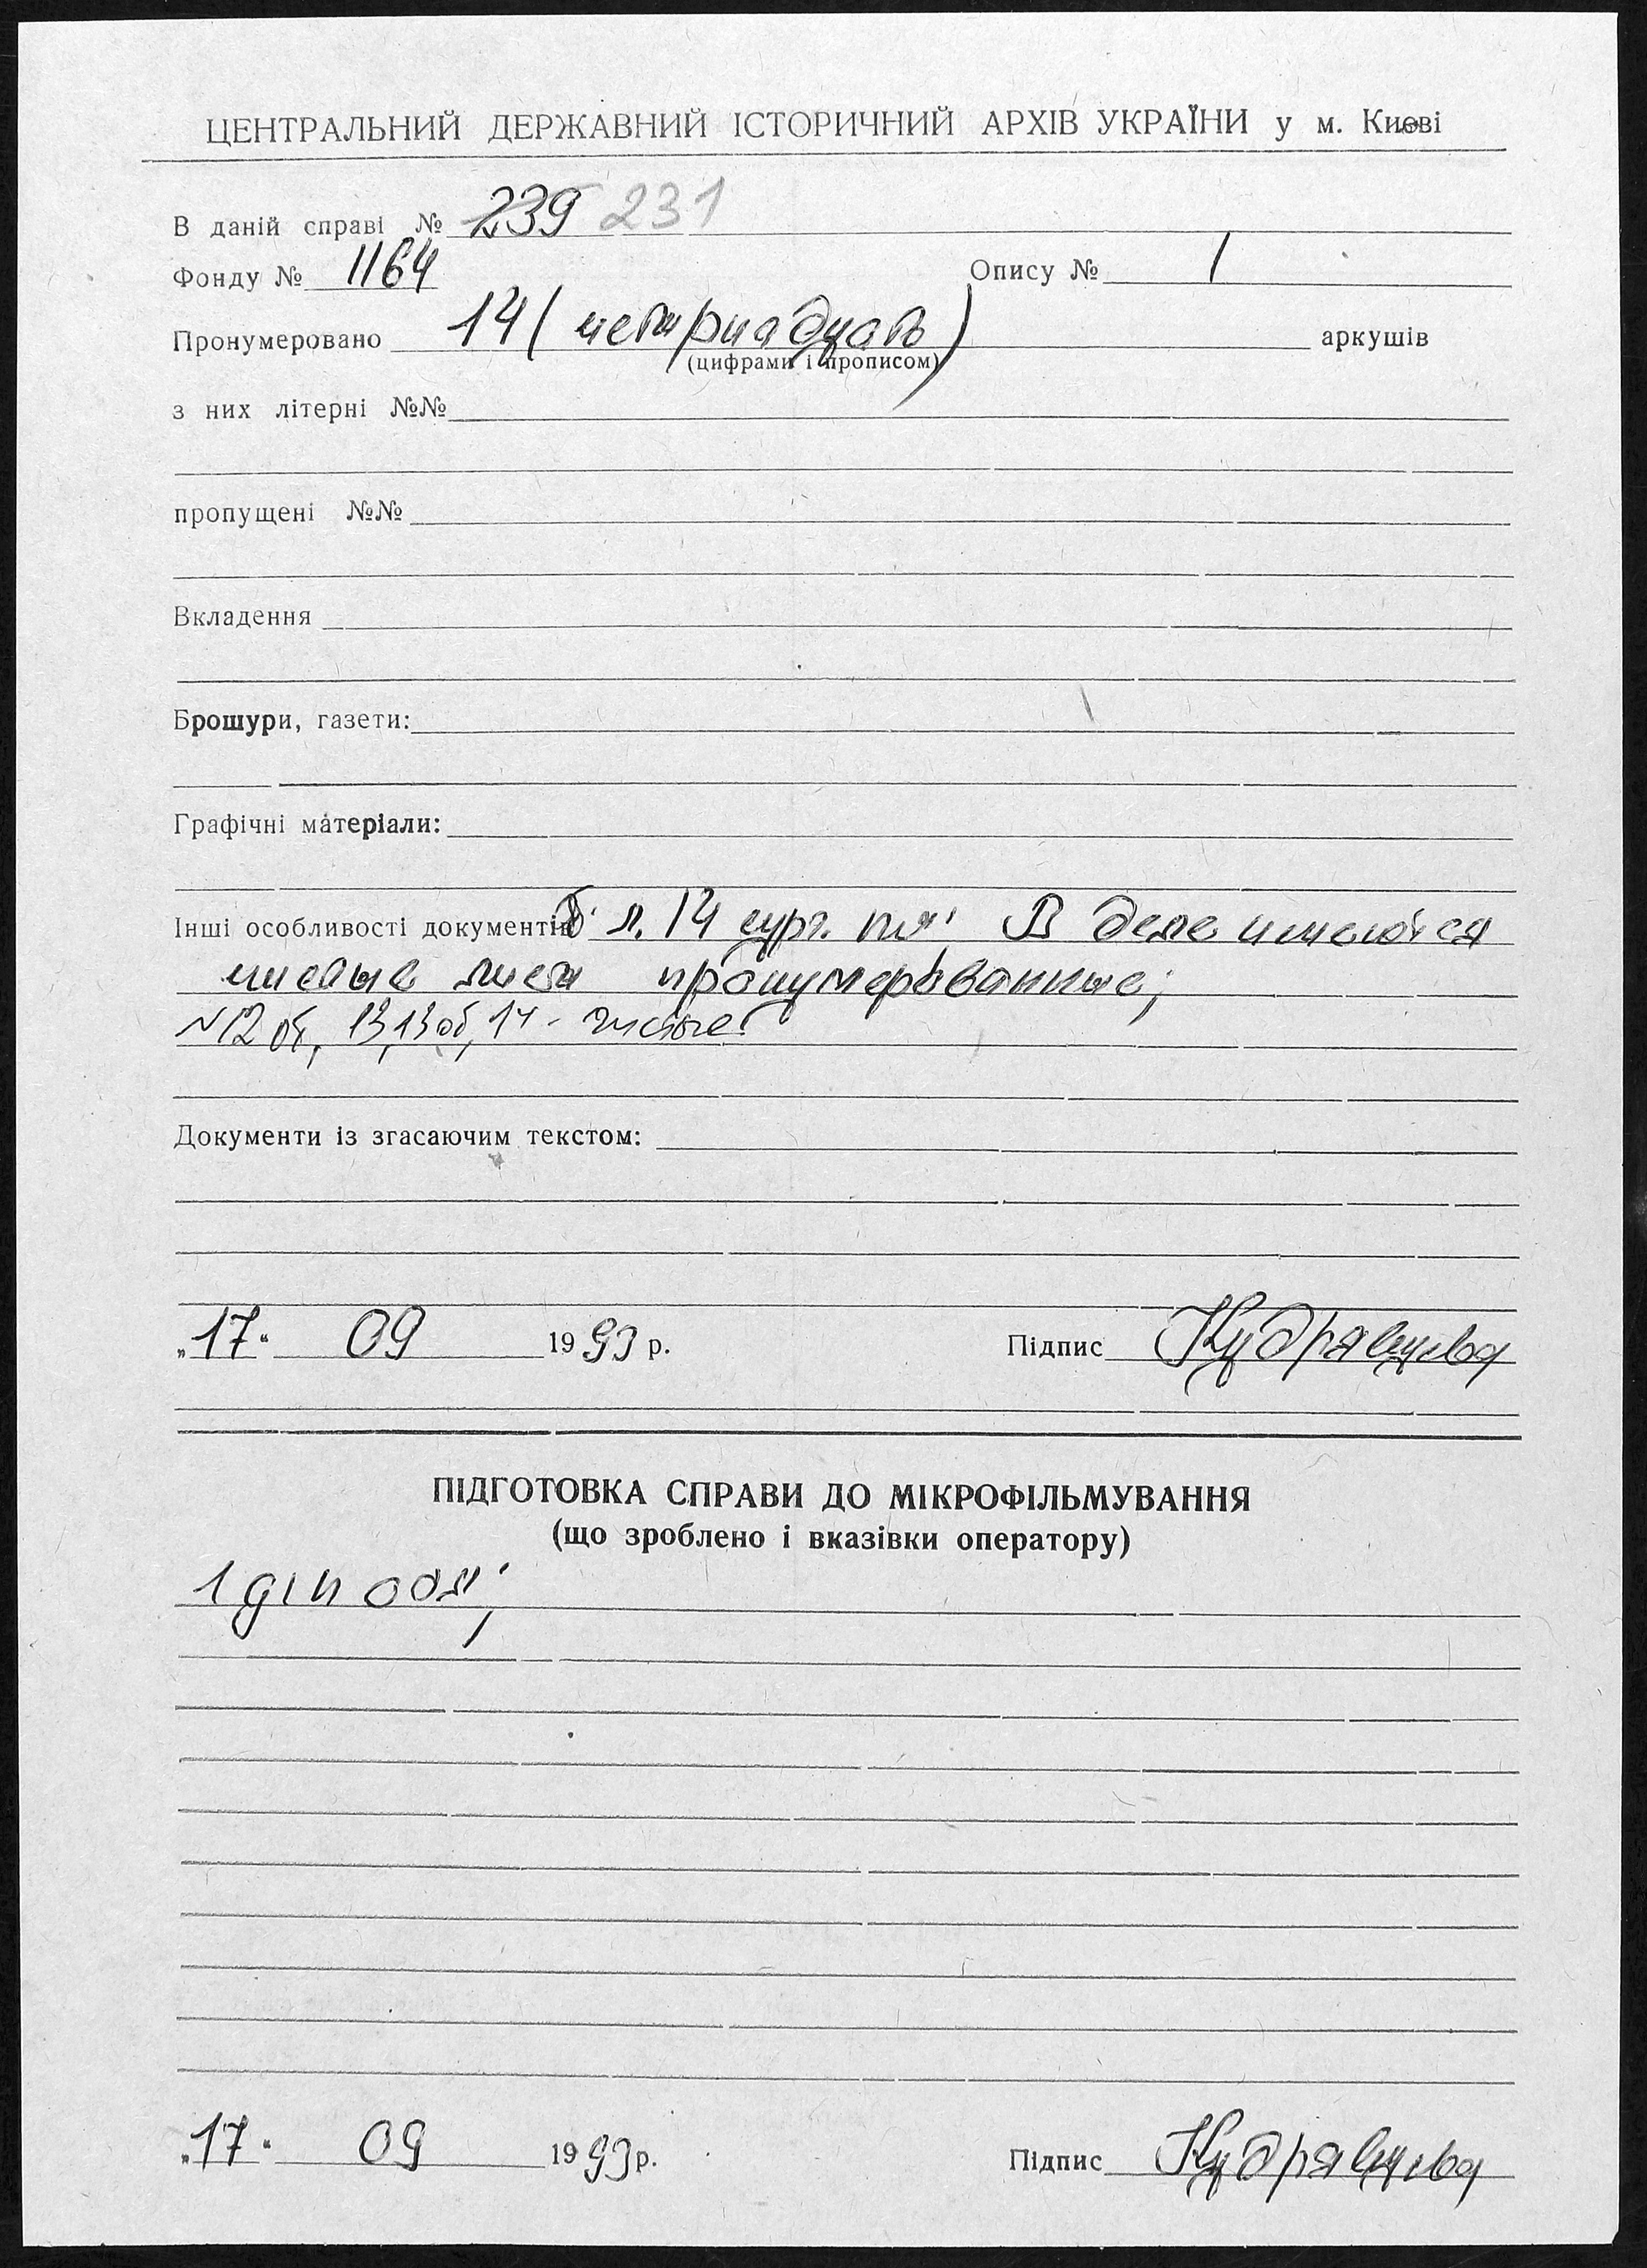 ЦЕНТРАЛЬНИЙ ДЕРЖАВНИЙ ІСТОРИЧНИЙ АРХІВ УКРАЇНИ у м. Києві
В даній справі № 239 231
Фонду № 1164 Опису № 1
Пронумеровано 14 (четирнадцать) аркушів
(цифрами і прописом)
з них літерні №№
пропущені №№
Вкладення
Брошури, газети:
Графічні матеріали:
Інші особливості документів л. 14 сург. В деле имеются
чистые листы пронумерованные;
№12 об, 13, 13 об, 14 - чистые.
Документи із згасаючим текстом:
„17“ 09 1993 р. Підпис Кудрявцева
ПІДГОТОВКА СПРАВИ ДО МІКРОФІЛЬМУВАННЯ
(що зроблено і вказівки оператору)
1
„17“ 09 1993 р. Підпис Кудрявцева